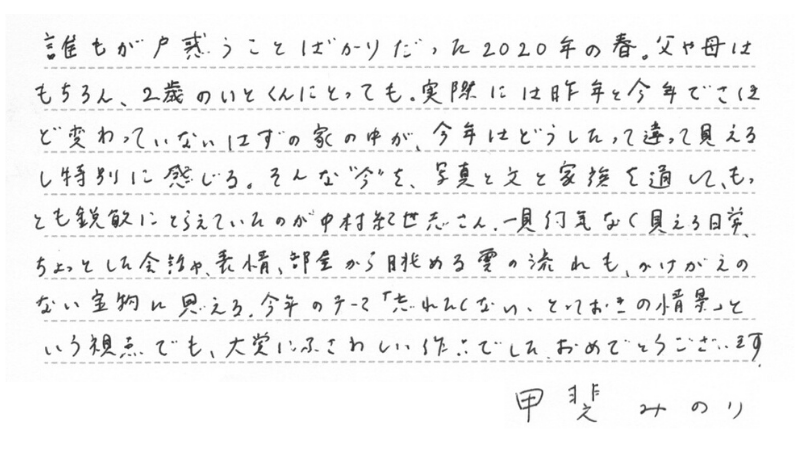 誰もが戸惑うことばかりだった2020年の春。父や母は
もちろん、2歳のいとくんにとっても。実際には昨年と今年でさほ
ど変わっていないはずの家の中が、今年はどうしたって違って見える
し特別に感じる。そんな"今"を、写真と文と家族を通して、もっ
とも鋭敏にとらえていたのが中村紀世志さん。一見何気なく見える日常、
ちょっとした会話や、表情、部屋から眺める雲の流れも、かけがえの
ない宝物に思える。今年のテーマ「忘れたくない、とっておきの情景」と
いう視点でも、大賞にふさわしい作品でした。おめでとうございます。
甲斐みのり